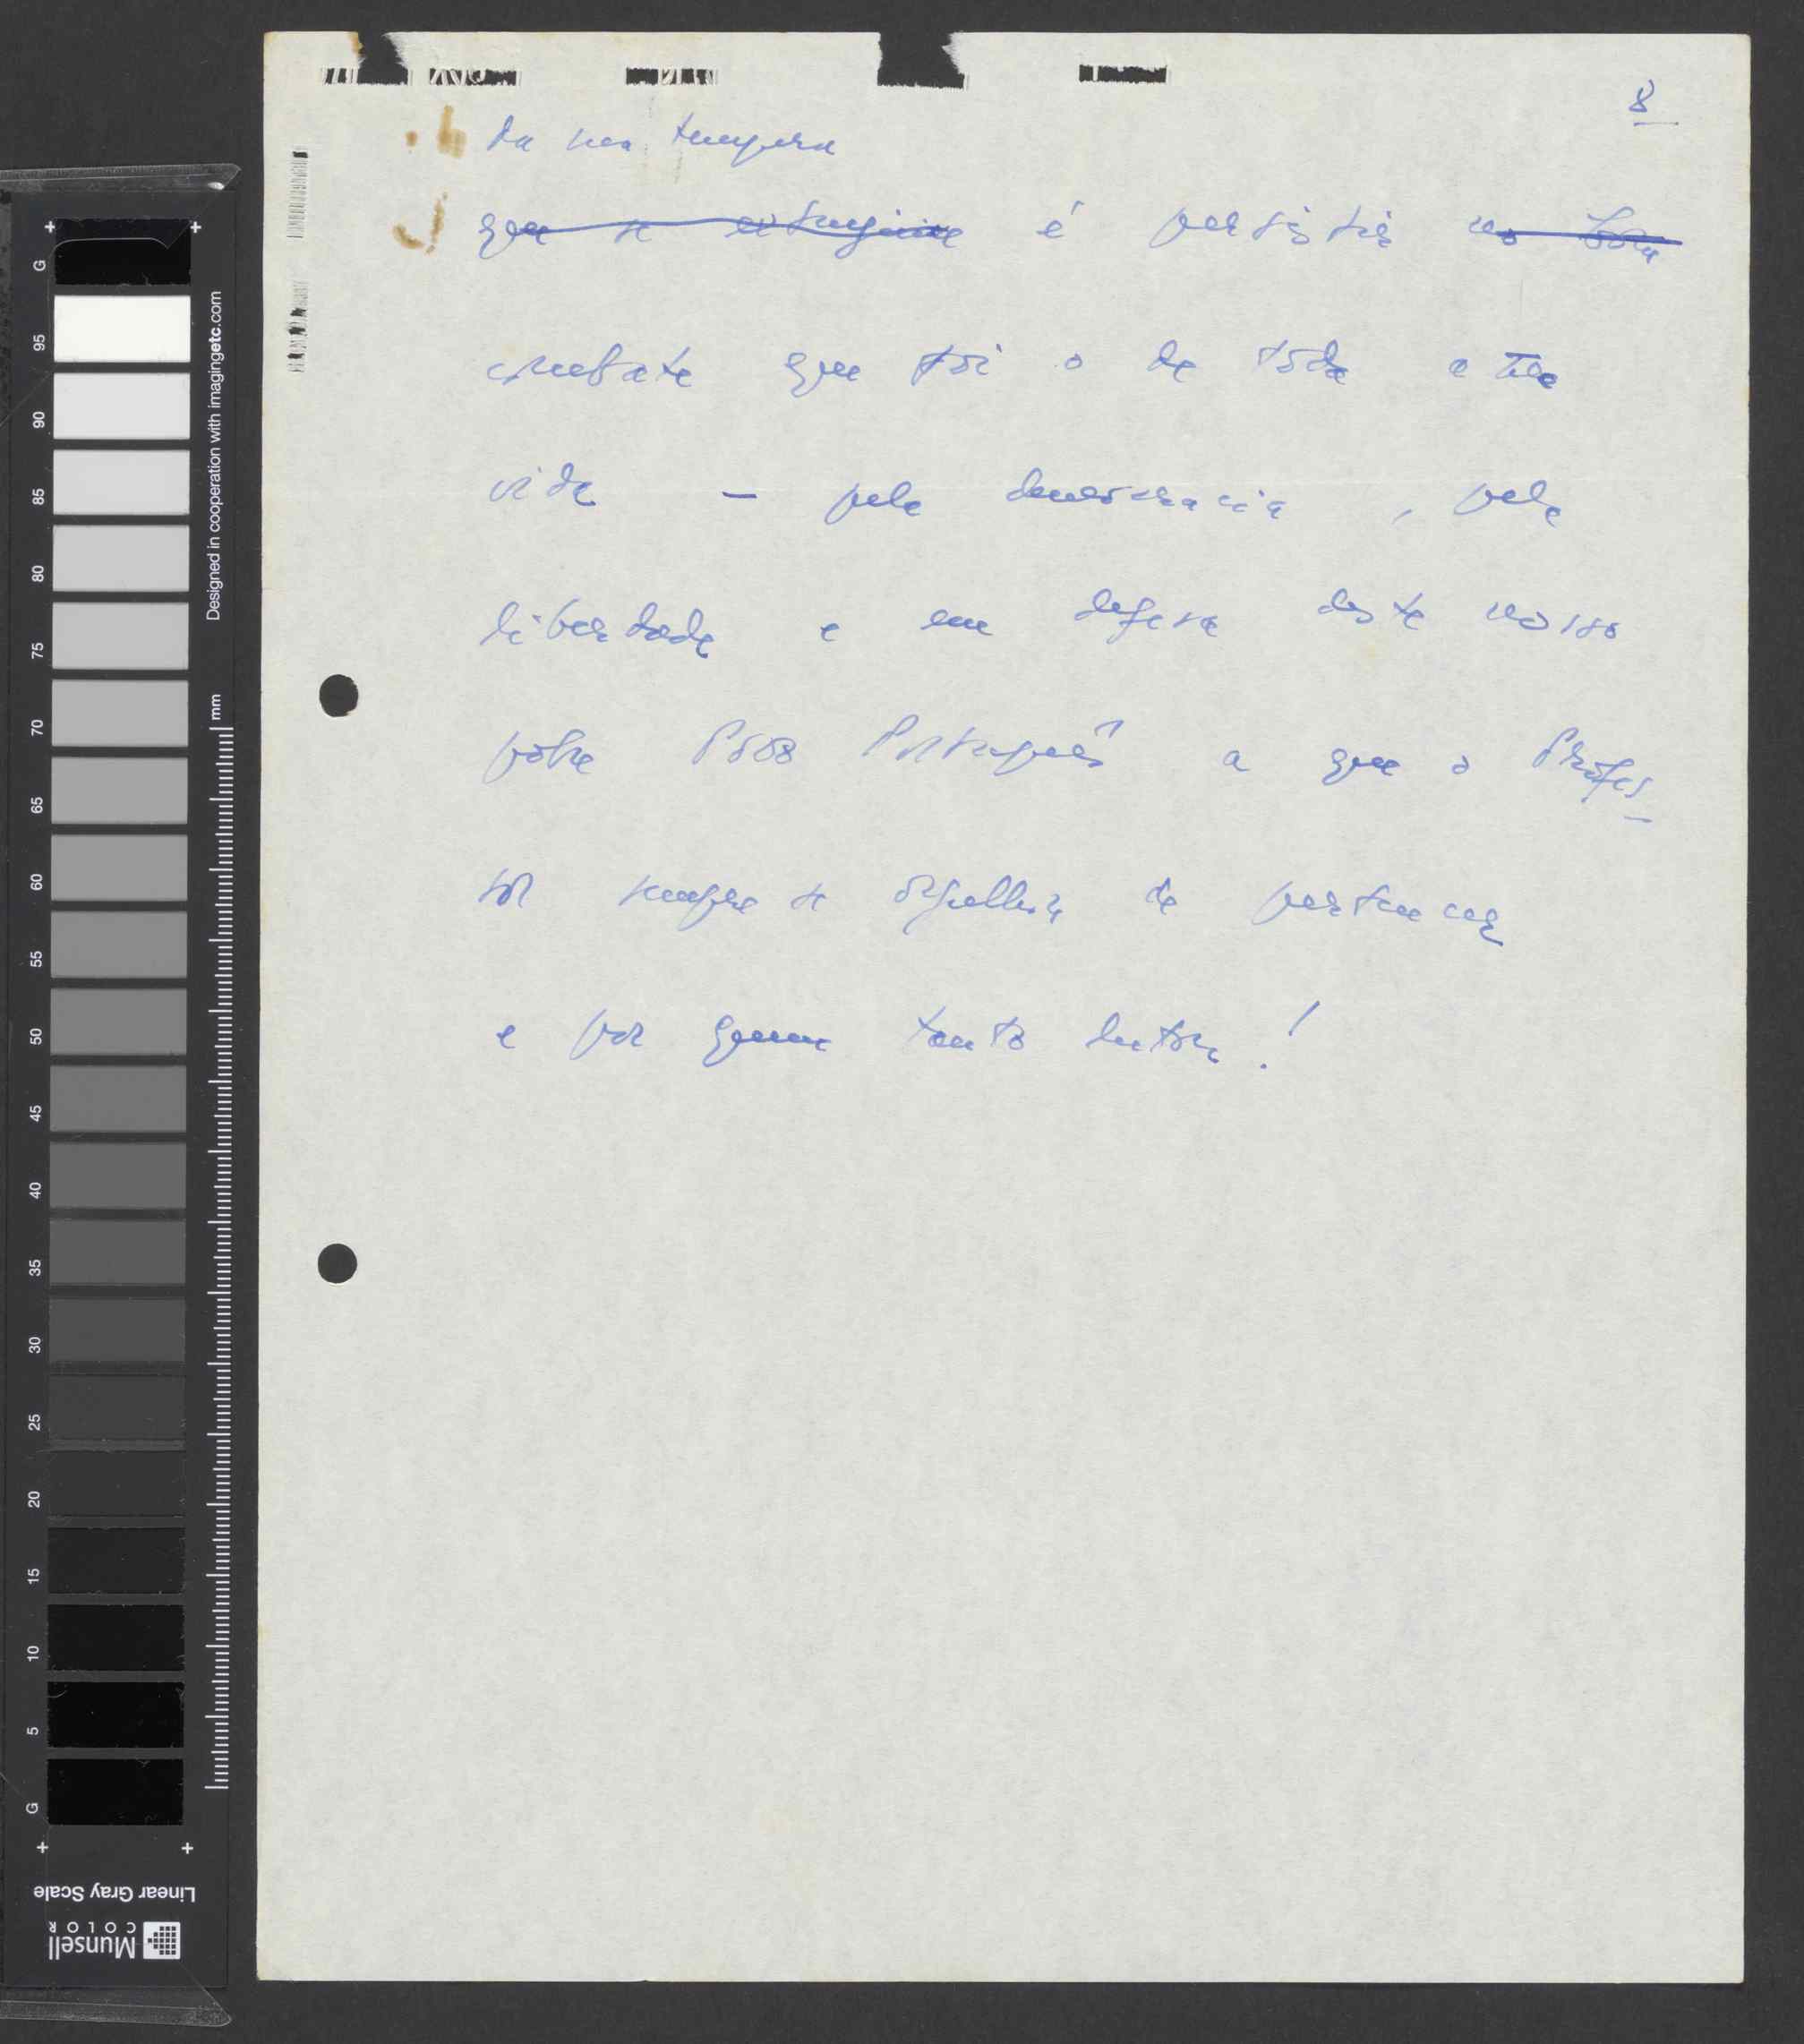 8
da sua tempera
~~que se extinguiu~~ é persistir no ~~bom~~
combate que foi o de toda a sua
vida – pela democracia, pela
liberdade e em defesa deste nosso
pobre Povo Português a que o Profes-
sor sempre se orgulhou de pertencer
e por quem tanto lutou!
Designed in cooperation with imagingetc.com
mm
G
95
90
85
80
75
70
65
60
55
50
45
40
35
30
25
20
15
10
5
G
Linear Gray Scale
Munsell
COLOR